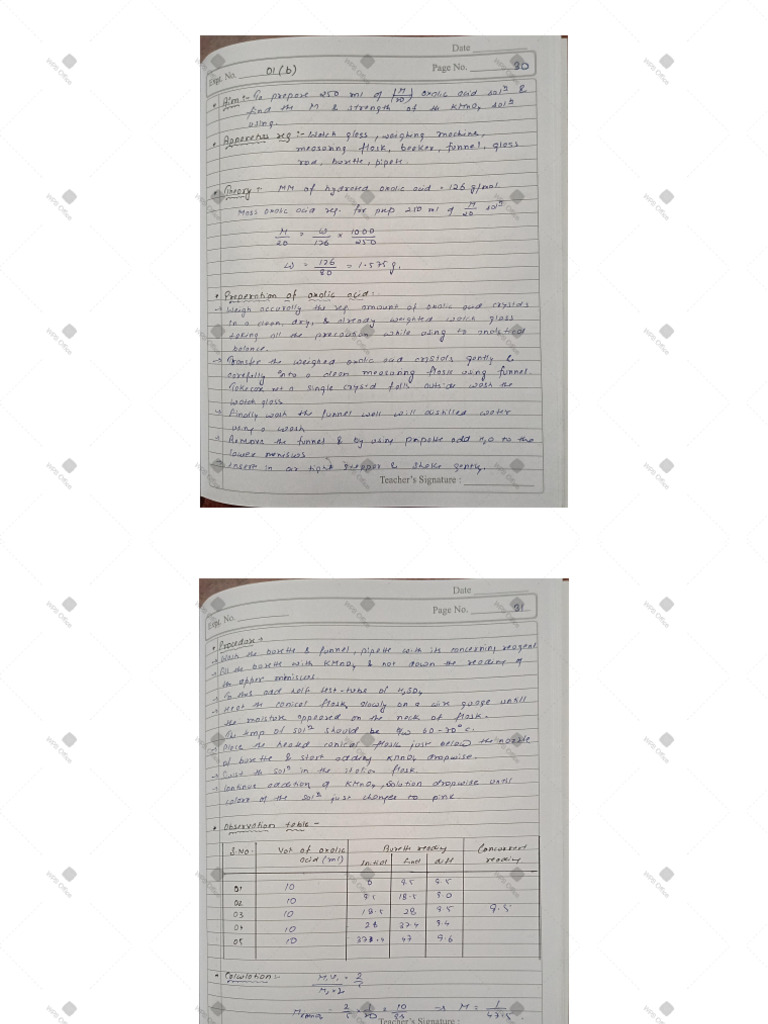 Date
Expt. No. 01(b)
Page No. 30
• Aim:- To prepare 250 ml of (M/20) oxalic acid solⁿ &
find the M & strength of the KMnO₄ solⁿ
using.
• Apparatus req :- Watch glass, weighing machine,
measuring flask, beaker, funnel, glass
rod, burette, pipete.
• Theory :- MM of hydrated oxalic acid = 126 g/mol
Mass oxalic acid req. for prep 250 ml of M/20 solⁿ
M/20 = W/126 × 1000/250
W = 126/80 = 1.575 g.
• Preperation of oxalic acid:
→ Weigh accurally the req. amount of oxalic acid crystals
in a clean, dry, & already weighted watch glass
taking all the precaution while using to analytical
balance.
→ Transfer the weighed oxalic acid crystals gently &
carefully into a clean measuring flask using funnel.
Take care not a single crystal falls outside wash the
watch glass
→ Finally wash the funnel well will distilled water
using a wash
→ Remove the funnel & by using add H₂O to the
lower meniscus
→ Insert in air tight stopper & shake gently.
Teacher's Signature :
Date
Expt. No.
Page No. 31
• Procedure -
→ Wash the burette & funnel, pipette with its concerning reagent
→ Fill the burette with KMnO₄ & not down the reading of
the upper meniscus
→ To this add half test-tube of H₂SO₄
→ Heat the conical flask, slowly on a wire guage untill
the moisture appeared on the neck of flask.
→ The temp of solⁿ should be b/w 60-70°c.
→ Place the heated conical flask just below the nozzle
of burette & start adding KMnO₄ dropwise.
→ the solⁿ in the flask.
→ Continue addition of KMnO₄ solution dropwise until
colore of the solⁿ just changes to pink.
• Observation table -
S.No. Vol. of oxalic acid (ml) Burette reading Concurrent reading
initial final diff
01 10 0 9.5 9.5
02 10 9.5 18.5 9.0
03 10 18.5 28 9.5 9.5
04 10 28 37.4 9.4
05 10 37.4 47 9.6
• Calculation:- M₁V₁ = 2
M KMnO₄ = 2/5 × 1/20 × 10 → M = 1/47.5
Teacher's Signature :